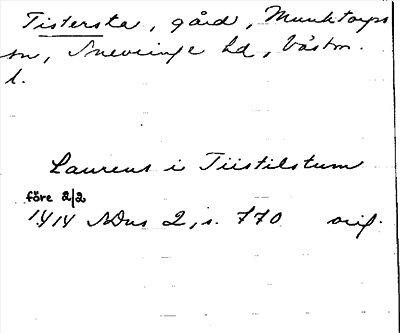 Tistersta, gård, Munktorps
sn, Snevringe hd, Västm.
l.
Laurens i Tiistilstum
före 2/2
1414 SDns 2, s. 770 orig.